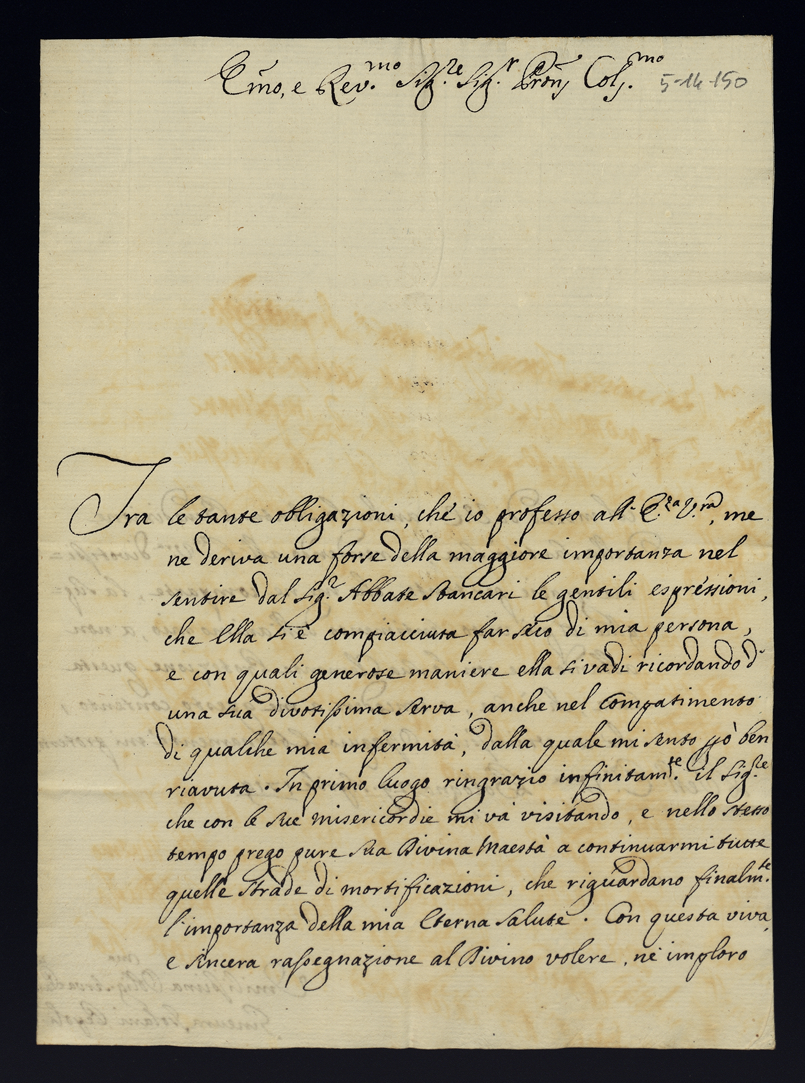 Emo, e Rev.mo Sig.re Sig.r Pron Col.mo 5-14-150
Tra le tante obbligazioni, che io professo all' E.za V.ra, me
ne deriva una forse della maggiore importanza nel
sentire dal Sig.r Abbate Stancari le gentili espressioni,
che Ella si è compiacciuta far seco di mia persona,
e con quali generose maniere ella si vadi ricordando d'
una sua divotissima serva, anche nel Compatimento
di qualche mia infermità, dalla quale mi sento però ben
riavuta. In primo luogo ringrazio infinitam.te il Sig.re
che con le sue misericordie mi và visitando, e nello stesso
tempo prego pure Sua Divina Maestà a continuarmi tutte
quelle strade di mortificazioni, che riguardano finalm.te
l'importanza della mia Eterna Salute. Con questa viva,
e sincera rassegnazione al Divino volere, né imploro